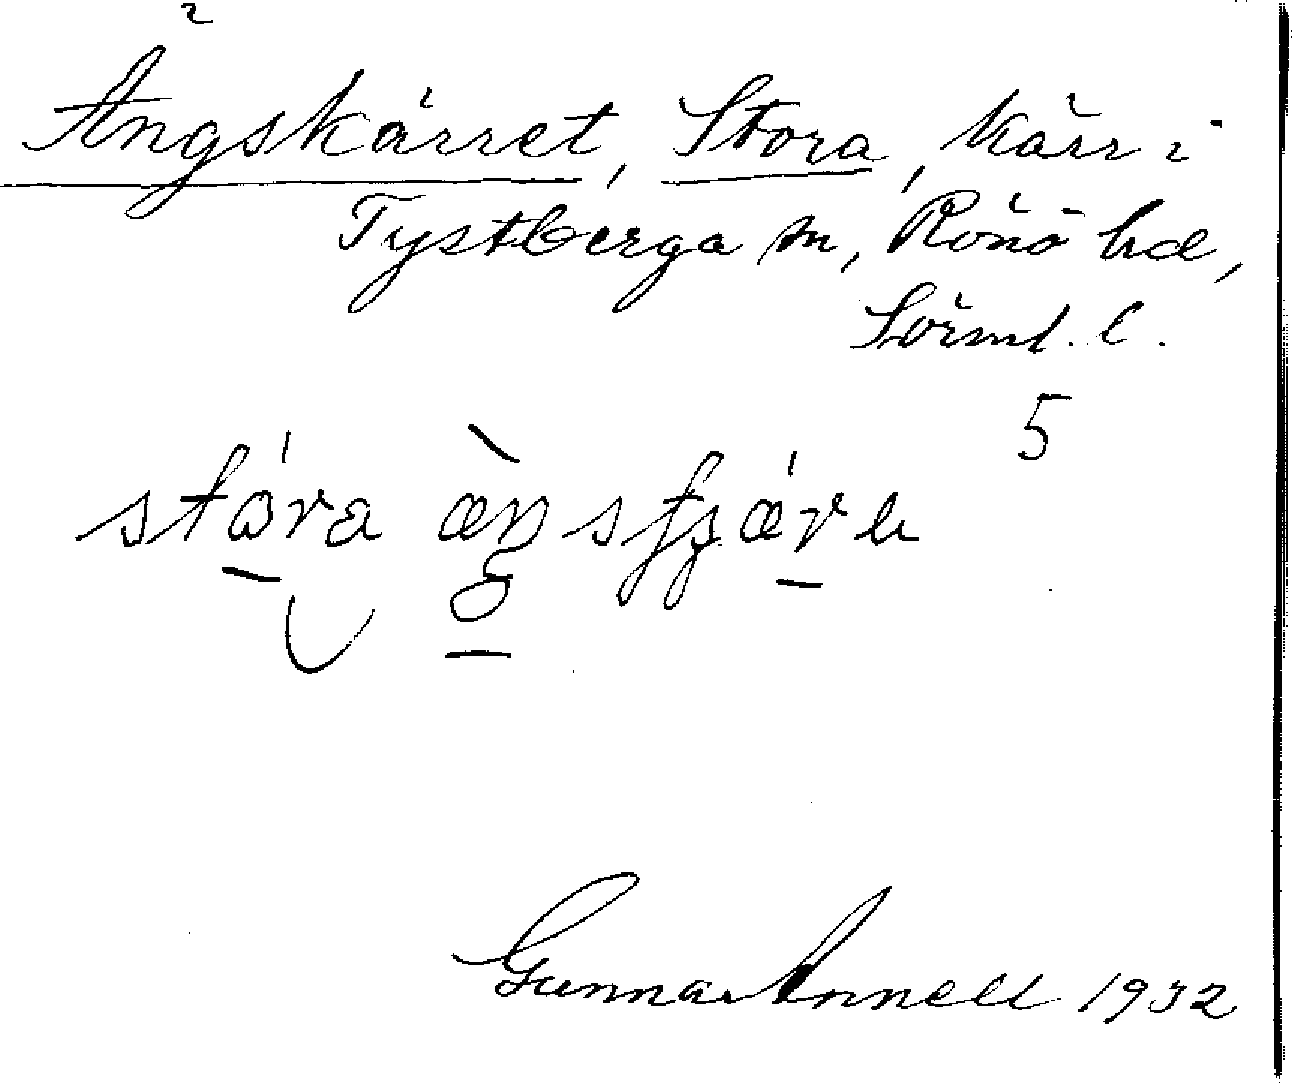 Ängskärret, Stora, kärr i
Tystberga sn, Rönö hd,
Sörml. l.
5
Gunnar Annell 1932